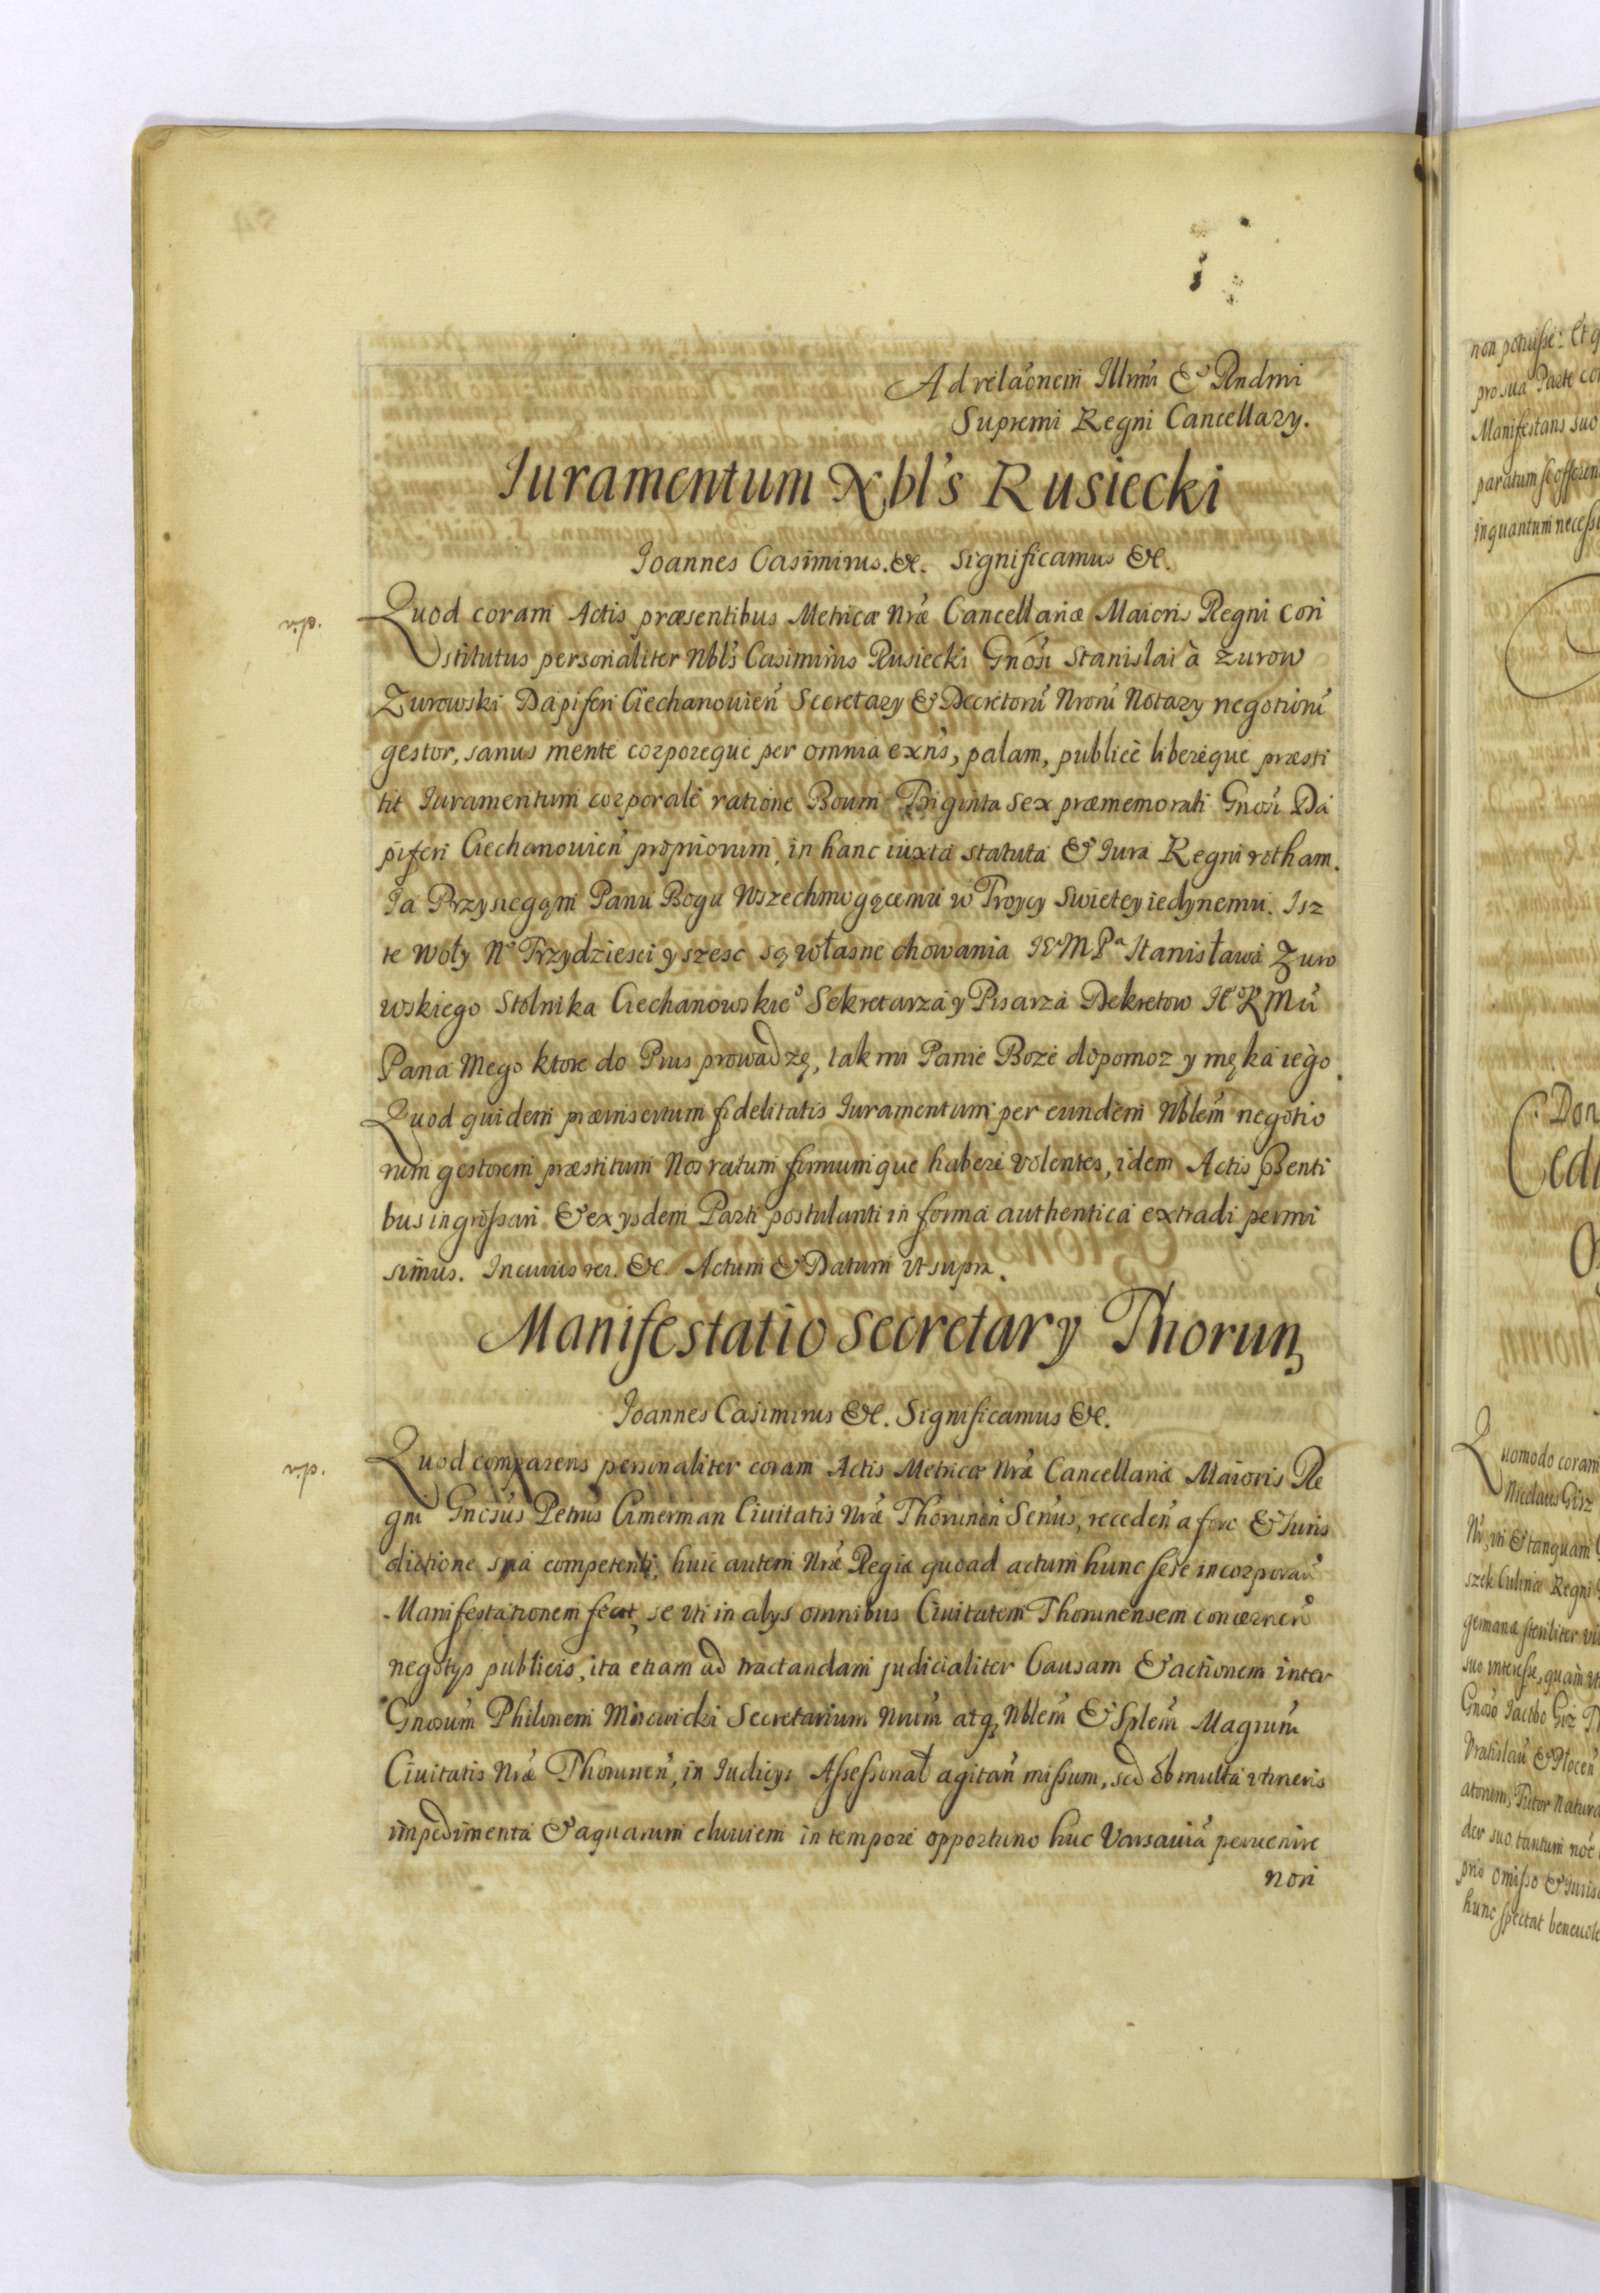 Ad relaõnem Illmi & Rndmi
Supremi Regni Cancellary.
Iuramentum Nbl's Rusiecki
Ioannes Casimirus. &c. significamus &c.
v.p.
Quod coram Actis præsentibus Metricæ Nræ Cancellariæ Maioris Regni con
stitutus personaliter Nbl's Casimirus Rusiecki Gnosi Stanislai à Zurow
Zurowski Dapiferi Ciechanouien Secretary & Decretorũ Nrorũ Notary negotiorũ
gestor, sanus mente corporeque per omnia exñs, palam, publicè libereque præsti
tit Iuramentum corporale ratione Boum Triginta sex præmemorati Gnosi Da
piferi Ciechanouien propriorum, in hanc iuxta statuta & Iura Regni rotham.
Ia Przysiegąm Panu Bogu Wszechmogącemu w Troycy Swietey iedynemu. Isz
te Woły No Trzydziesci y szesc są własne chowania IEM Pa Stanisława Zuro
wskiego Stolnika Ciechanowskieo Sekretarza y Pisarza Dekretow IEo K Mci
Pana Mego ktore do Prus prowadzę, tak mi Panie Boze dopomoz y męka iego.
Quod quidem præinsertum fidelitatis Iuramentum per eundem Nblem negotio
rum gestorem præstitum Nos ratum firmumque haberi volentes, idem Actis pñsenti
bus ingrossari & ex ysdem Parti postulanti in forma authentica extradi permi
simus. In cuius rei. &c. Actum & Datum ut supra.
Manifestatio Secretary Thorun
Ioannes Casimirus &c. Significamus &c.
v.p.
Quod comparens personaliter coram Actis Metricæ Nræ Cancellariæ Maioris Re
gni Gnosus Petrus Cimerman Ciuitatis Nræ Thorunen Secrius, receden a foro & Iuris
dictione sua competenti, huic autem Nræ Regiæ quoad actum hunc sese incorporan
Manifestationem fecit, se uti in alys omnibus Ciuitatem Thorunensem concernen
negotys publicis, ita etiam ad tractandam judicialiter Causam & actionem inter
Gnosum Philonem Secretarium Nrum atq Nblem & Splem Magrum
Ciuitatis Nræ Thorunen, in Iudicys Assessorial agitan missum, sed ob multa itineris
impedimenta & aquarum eluuiem in tempore opportuno huc Varsauiã peruenire
non